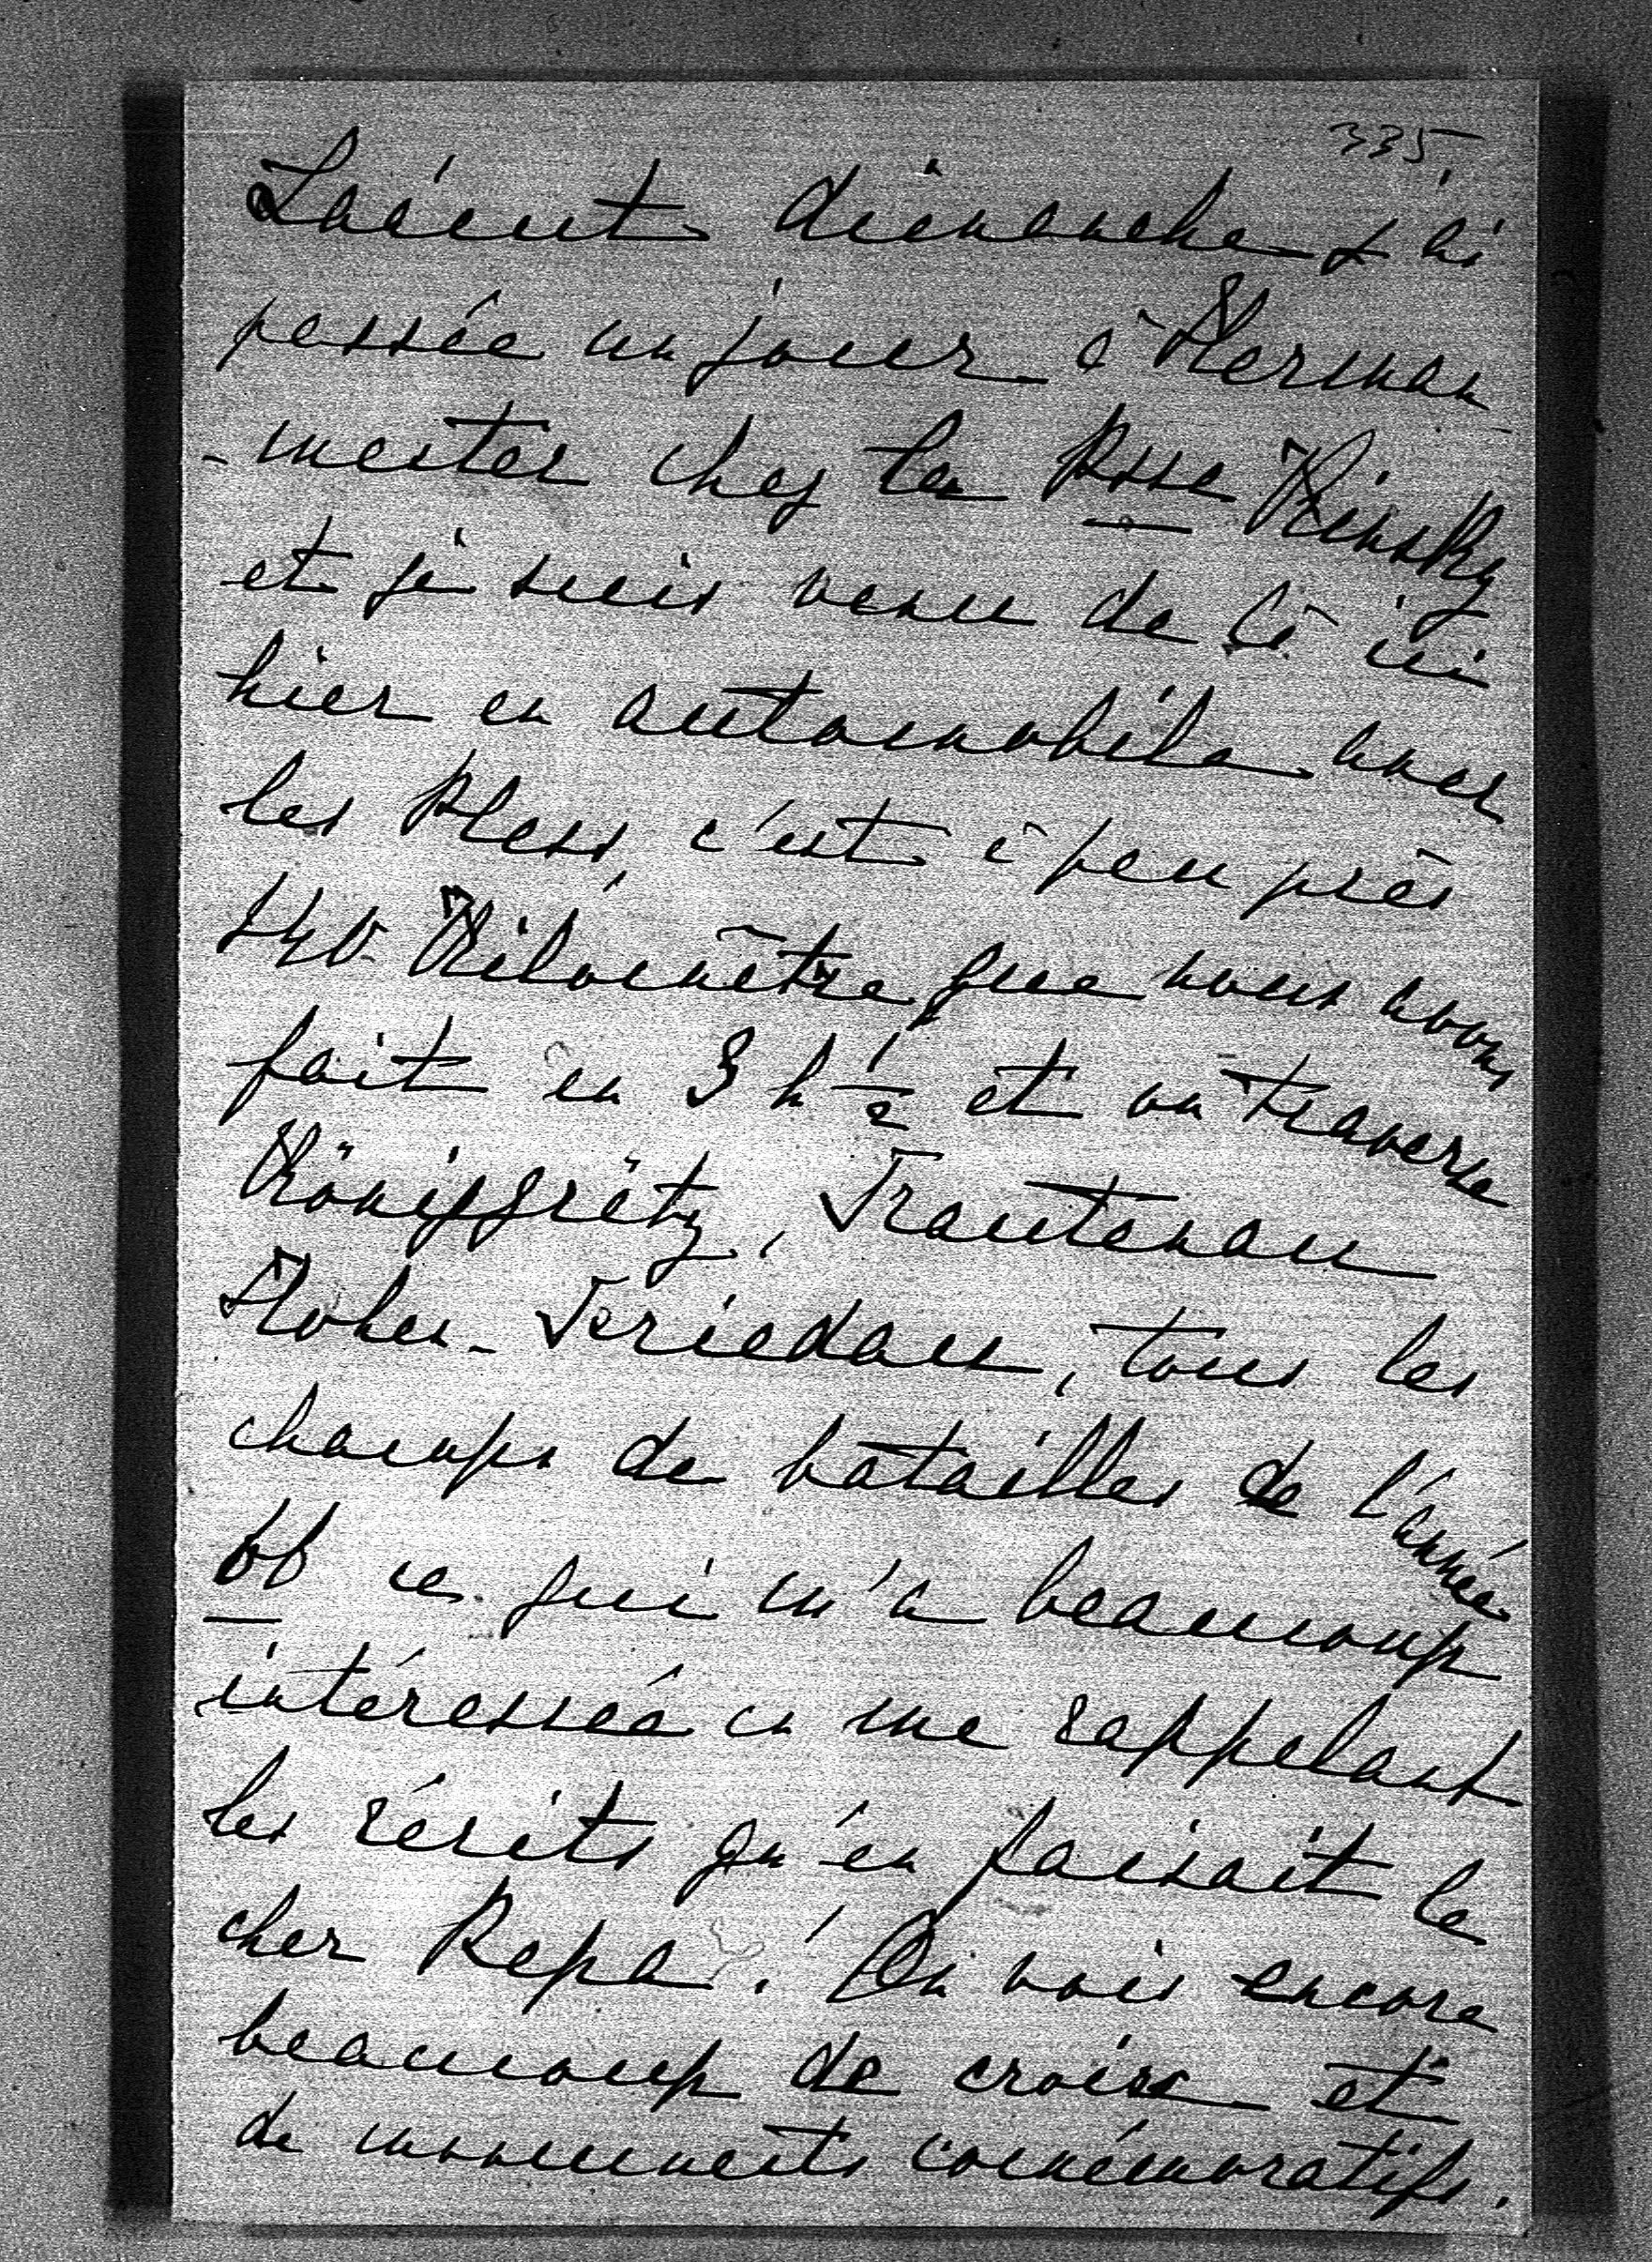 335
Lacent dimanche j'ai
passée un jour à Herman
-mester chez la Psse Kinsky
et je suis venu de là ici
hier en automobile avec
les Pless, c'est à peu près
140 Kilomètre que nous avons
fait en 3 h 1/2 et on traverse
Königgrätz, Trautenau
Hohen-Friedau, tous les
champs de batailles de l'année
66 ce qui m'a beaucoup
intéressée en me rappelant
les récits qu'en faisait le
cher Papa! On voie encore
beaucoup de croise et
de monuments comémoratifs.